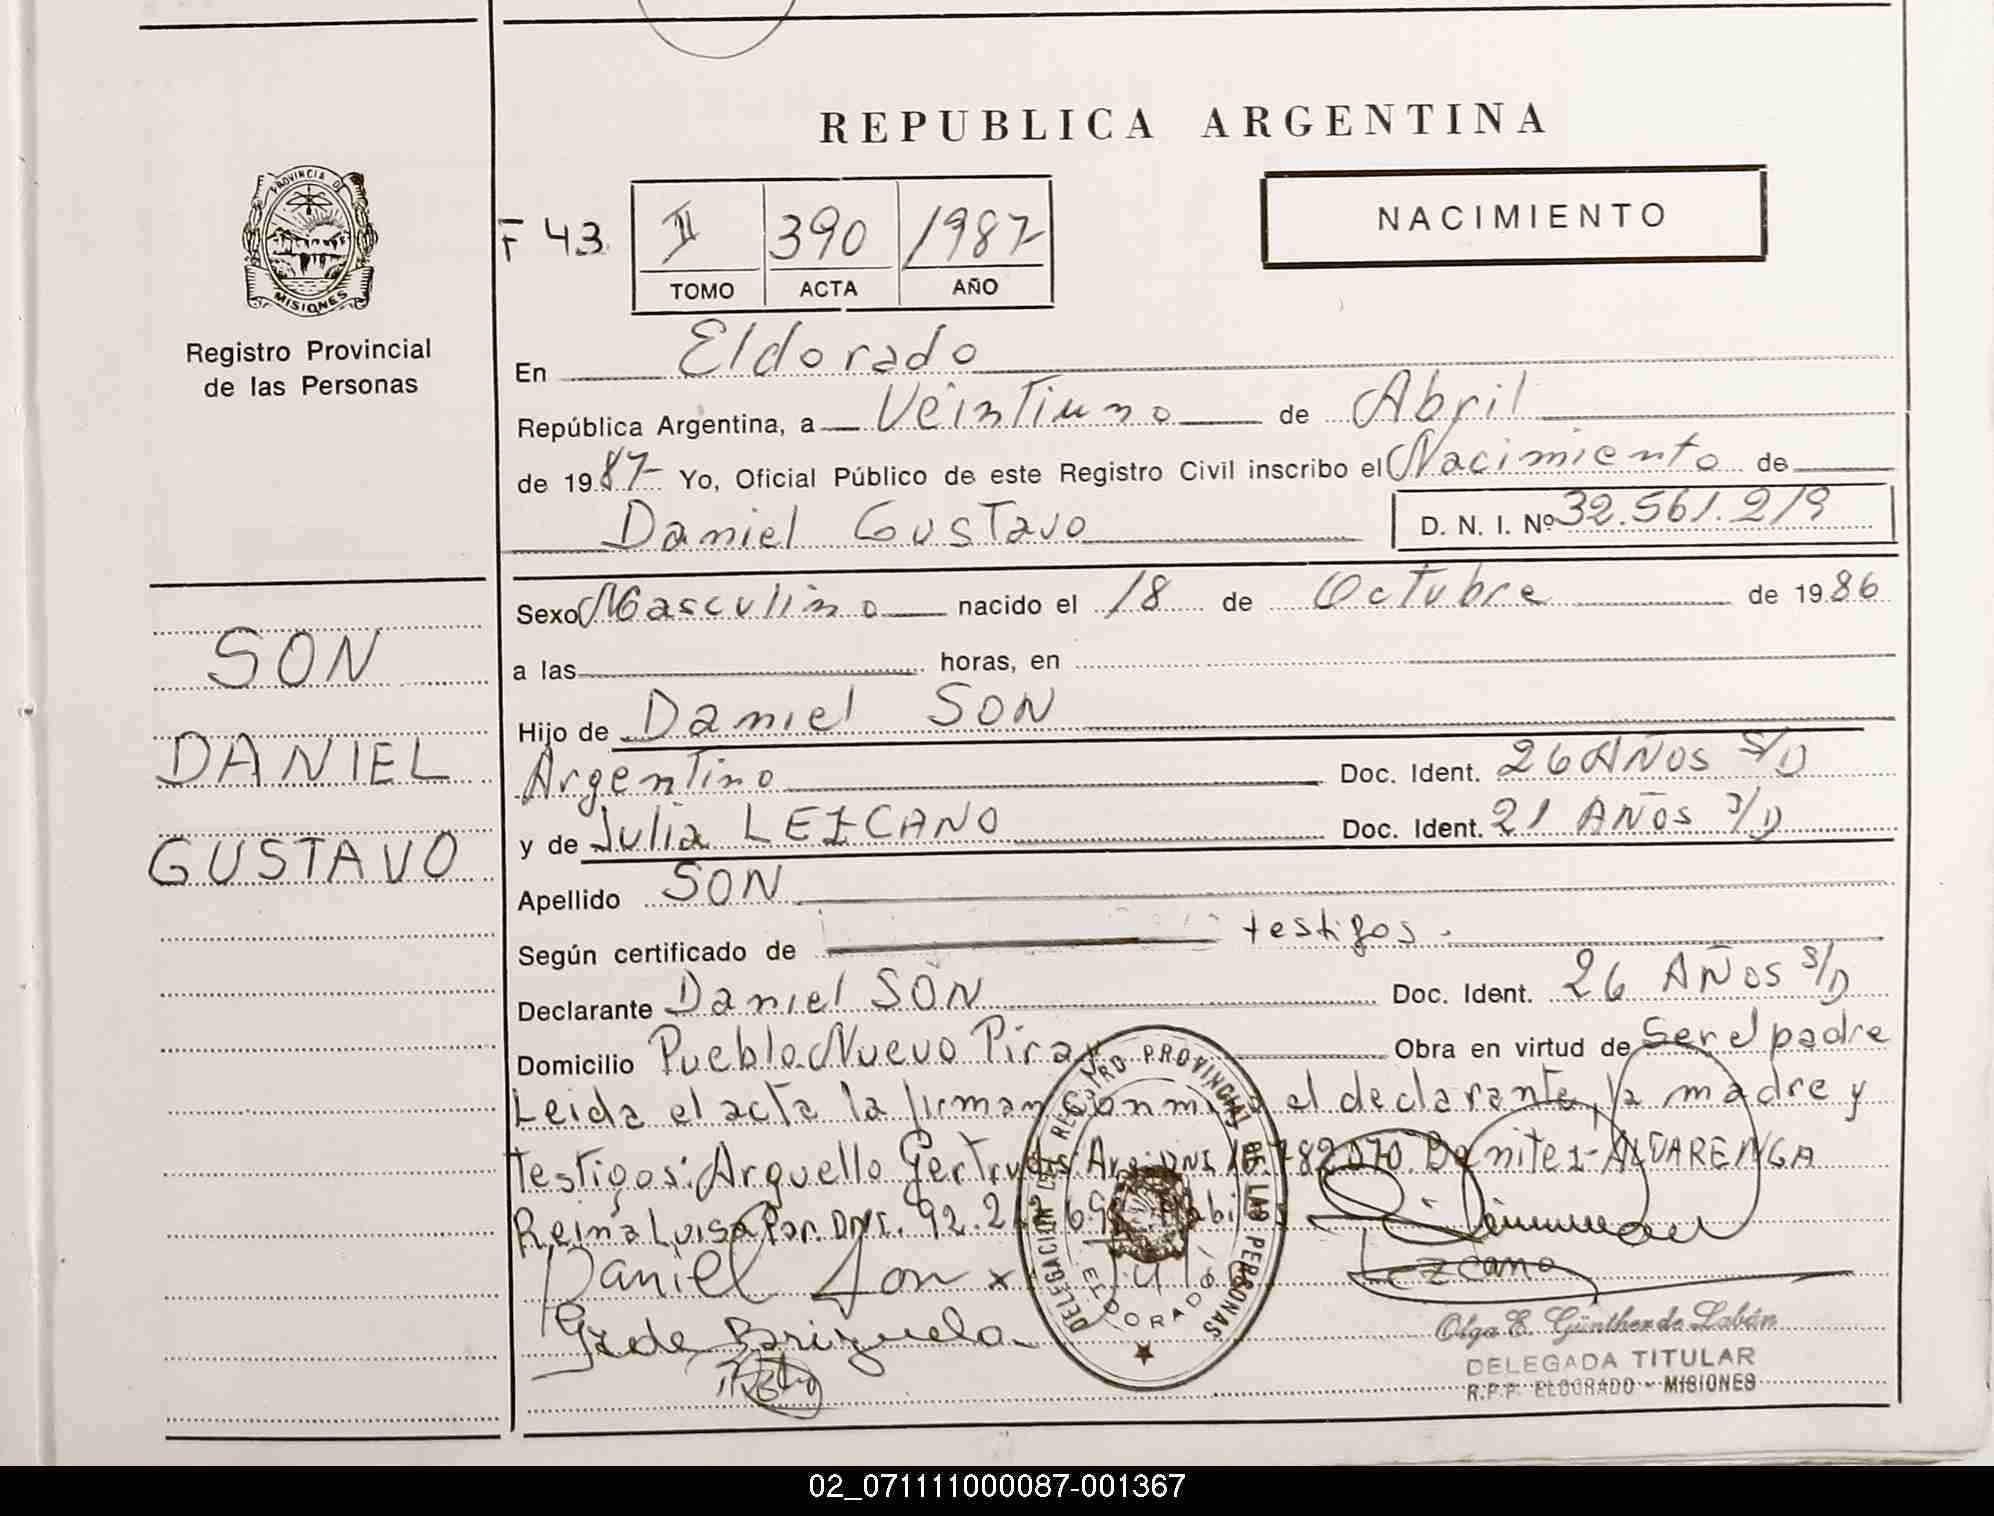 REPUBLICA ARGENTINA
PROVINCIA DE
MISIONES
Registro Provincial
de las Personas
NACIMIENTO
F 43
II 390 1987
TOMO ACTA AÑO
En Eldorado
República Argentina, a Veintiuno de Abril
de 1987 Yo, Oficial Público de este Registro Civil inscribo el Nacimiento de
Daniel Gustavo D. N. I. Nº 32.561.219
SON
DANIEL
GUSTAVO
Sexo Masculino nacido el 18 de Octubre de 1986
a las horas, en
Hijo de Daniel SON
Argentino Doc. Ident. 26 AÑOS S/D
y de Julia LEZCANO Doc. Ident. 21 AÑOS S/D
Apellido SON
Según certificado de testigos.
Declarante Daniel SON Doc. Ident. 26 AÑOS S/D
Domicilio Pueblo Nuevo Pira Obra en virtud de Ser el padre
Leida el acta la firman el declarante, la madre y
testigos: Arguello Gertrudis Arg. DNI 782070 Benitez-ALVARENGA
Reina Luisa Par. DNI. 92.2
Daniel Son x Julia Lezcano
Brizuela
DELEGACION DEL REGISTRO PROVINCIAL DE LAS PERSONAS
ELDORADO
Olga E. Günther de Labán
DELEGADA TITULAR
R.P.P. ELDORADO - MISIONES
02_071111000087-001367